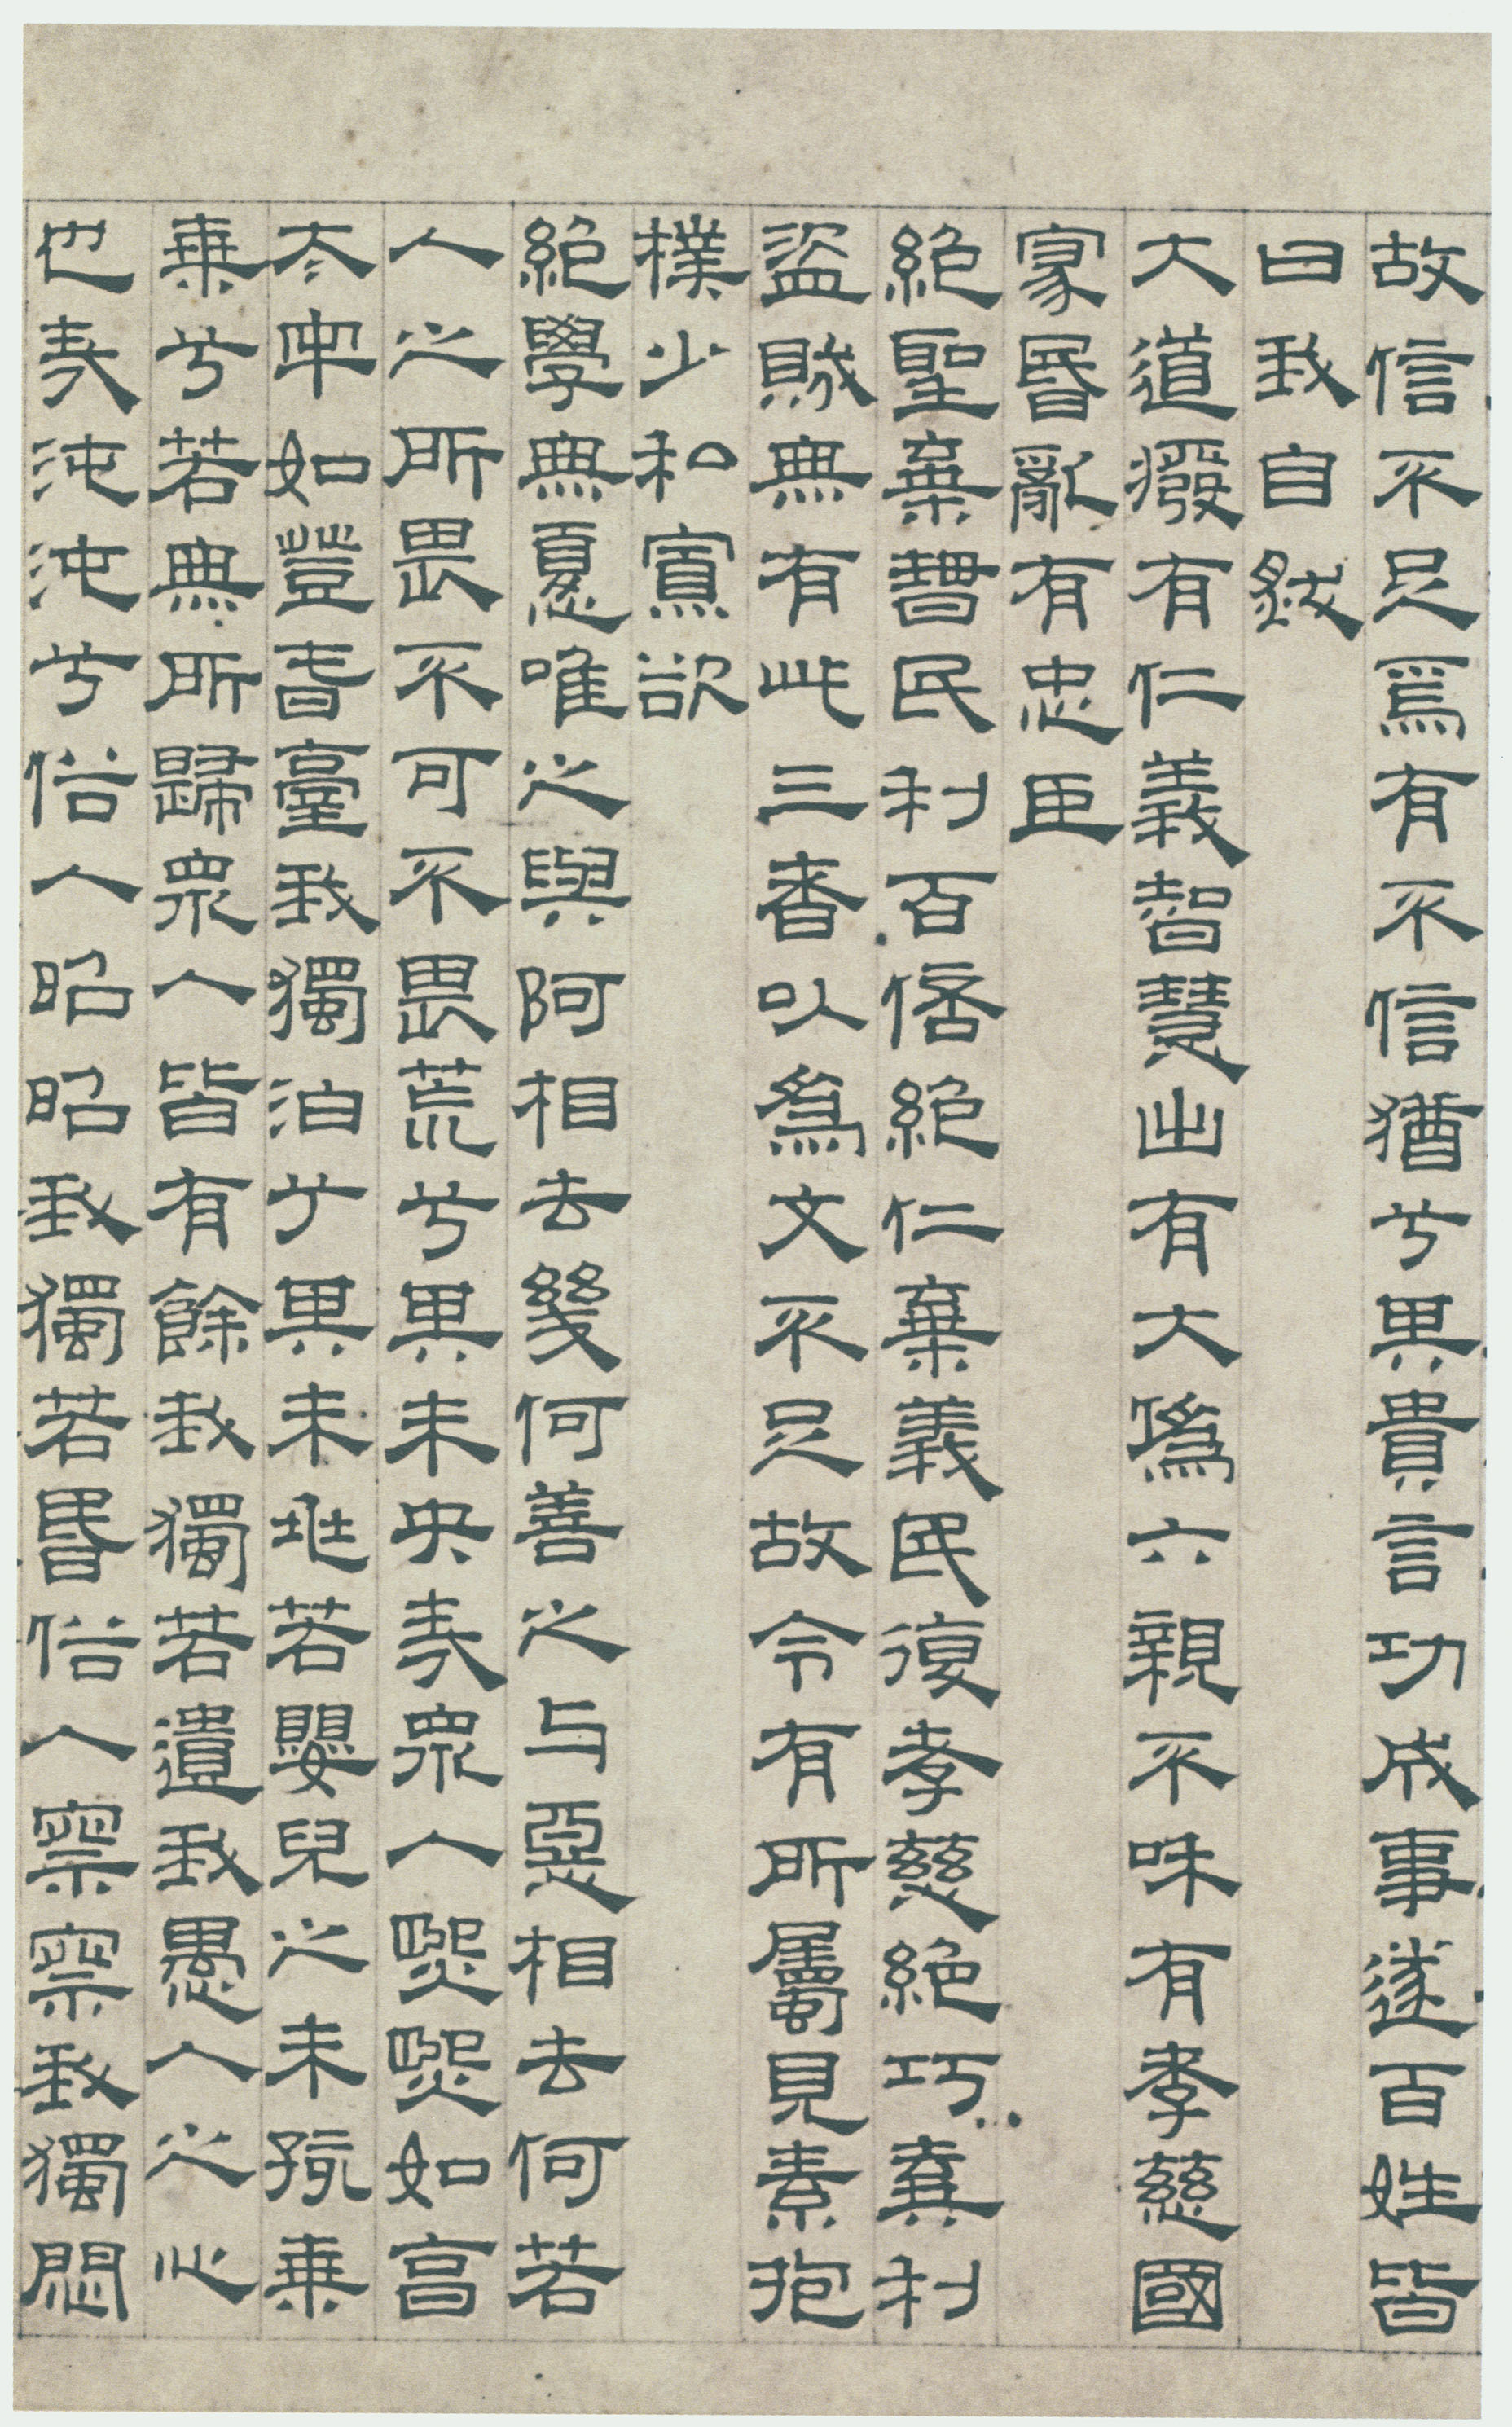 故信不足焉有不信猶兮其貴言功成事遂百姓皆
曰我自然
大道癈有仁義智慧出有大僞六親不咊有孝慈國
家昬亂有忠臣
絕聖棄智民利百倍絕仁棄義民復孝慈絕巧棄利
盜賊無有此三者以爲文不足故令有所屬見素抱
樸少私寡欲
絕學無憂唯之與阿相去幾何善之与惡相去何若
人之所畏不可不畏荒兮其未央哉衆人熙熙如亯
太牢如登春臺我獨泊兮其未兆若嬰兒之未孩乘
乘兮若無所歸衆人皆有餘我獨若遺我愚人之心
也哉沌沌兮俗人昭昭我獨若昬俗人察察我獨悶